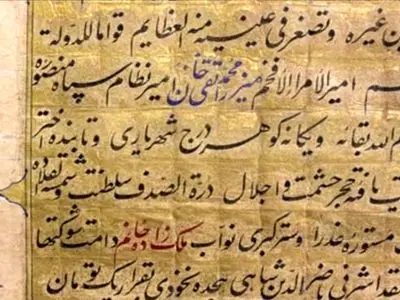 غیره و تصغر فی عینیه منه العظایم قواما للدولة
امیر الامراء الافخم میرزا محمد تقی خان امیر نظام سپاه منصوره
الله بقائه و یگانه گوهر درج شهریاری و تابنده اختر
یافته حجر حشمت و اجلال درة الصدف سلطنت و شمسه قلاده
مستوره خدرا و ستر کبری نواب ملک زاده خانم دامت شوکتها
اشرفی ناصر الدین شاهی هجده نخودی بقرار یک تومان